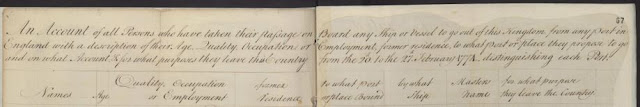 67
An Account of all Persons who have taken their passage on Board any Ship or Vessel to go out of this Kingdom from any Port in
England with a description of their Age, Quality, Occupation or Employment, former residence, to what port or place they propose to go
and on what Account & for what purposes they leave the Country from the 20 to the 27 February 1774, distinguishing each Port
Names Age Quality, Occupation or Employment former Residence to what Port or place Bound by what Ship Masters Name for what purpose they leave the Country